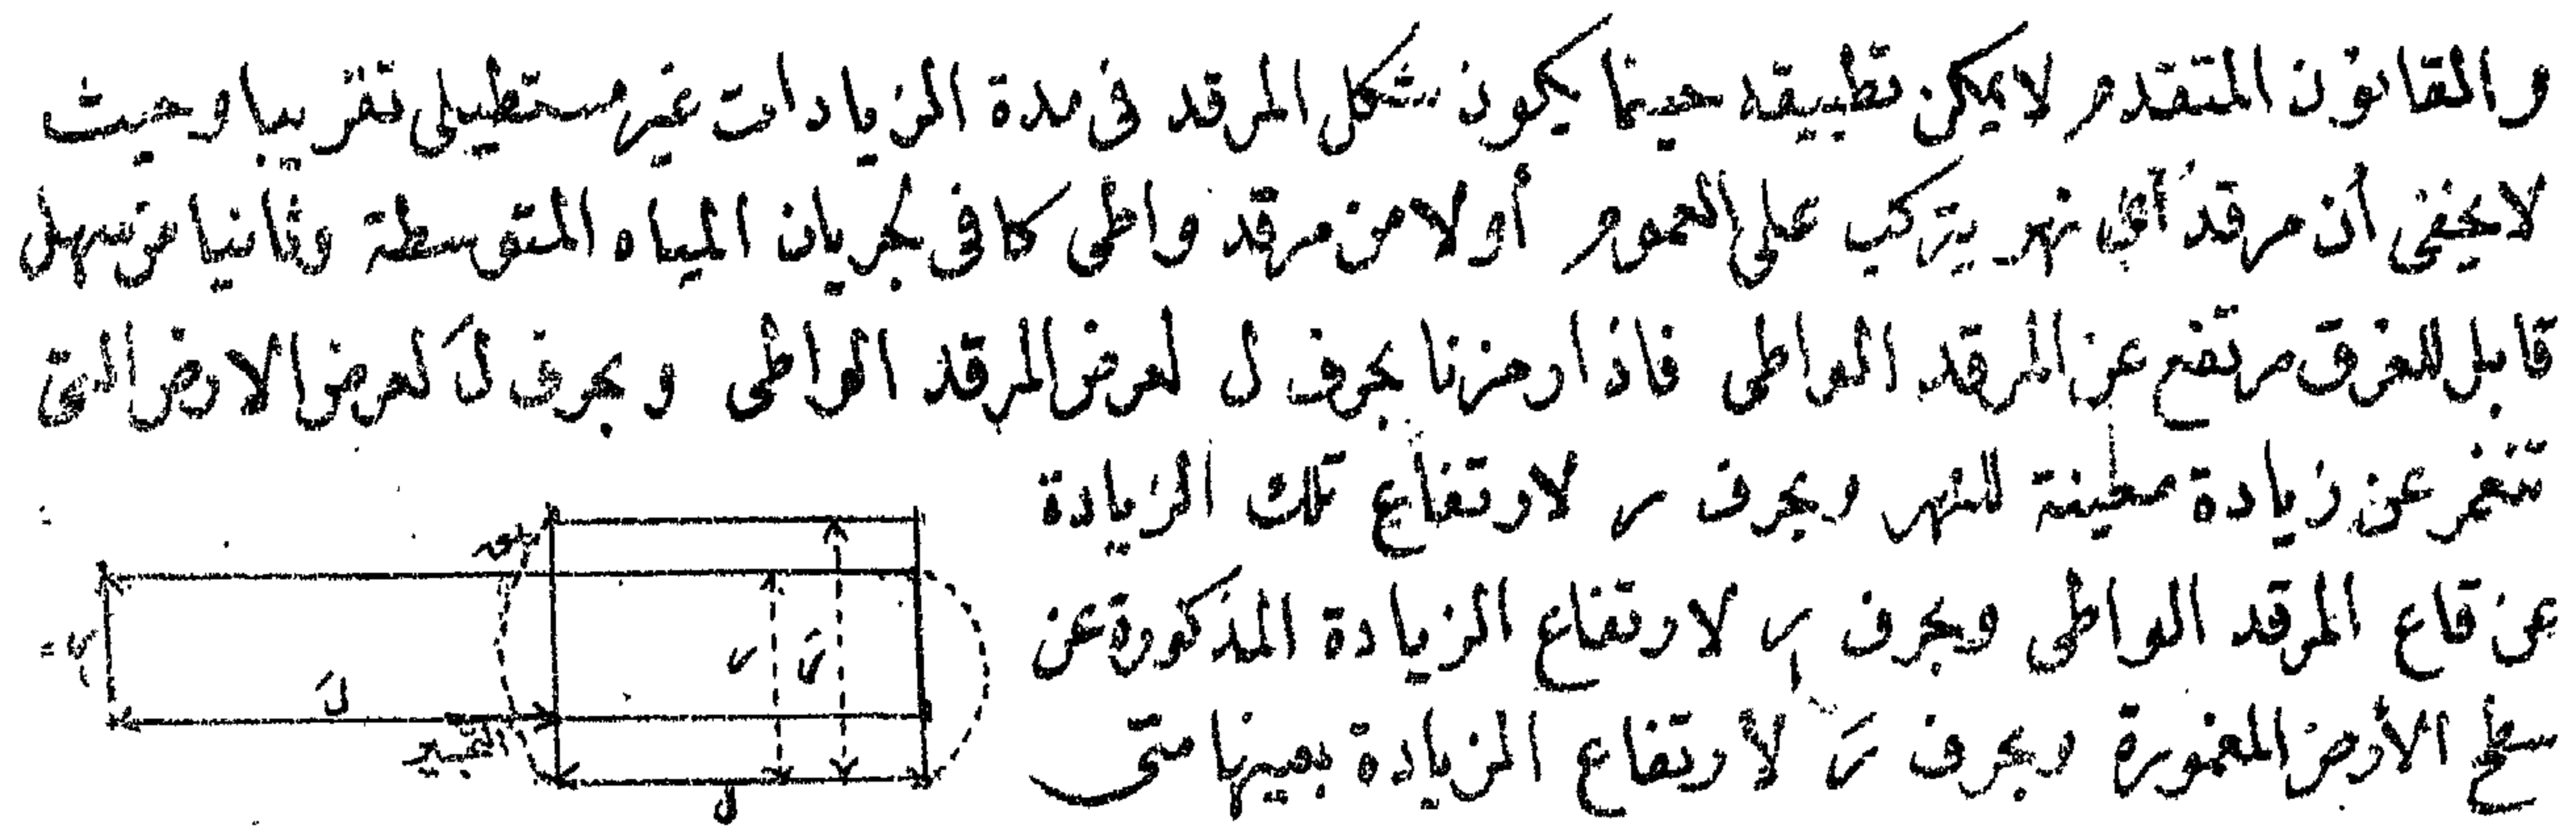 والقانون المتقدم لا يمكن تطبيقه حينما يكون شكل المرقد فى مدة الزيادات غير مستطيلى تقريبا وحيث
لا يخفى أن مرقد أى نهر يتركب على العموم أولا من مرقد واطى كافى لجريان المياه المتوسطة وثانيا من سهل
قابل للغرق مرتفع عن المرقد الواطى فاذا رمزنا بحرف ل لعرض المرقد الواطى وبحرف لَ لعرض الارض التى
تنغمر عن زيادة معلينة للنهر وبحرف ر لارتفاع تلك الزيادة
عن قاع المرقد الواطى وبحرف ر لارتفاع الزيادة المذكورة عن
سطح الأرض المغمورة وبحرف رَ لارتفاع الزيادة بعينها متى
بعد
ر
ر
رَ
لَ
التجبير
ل